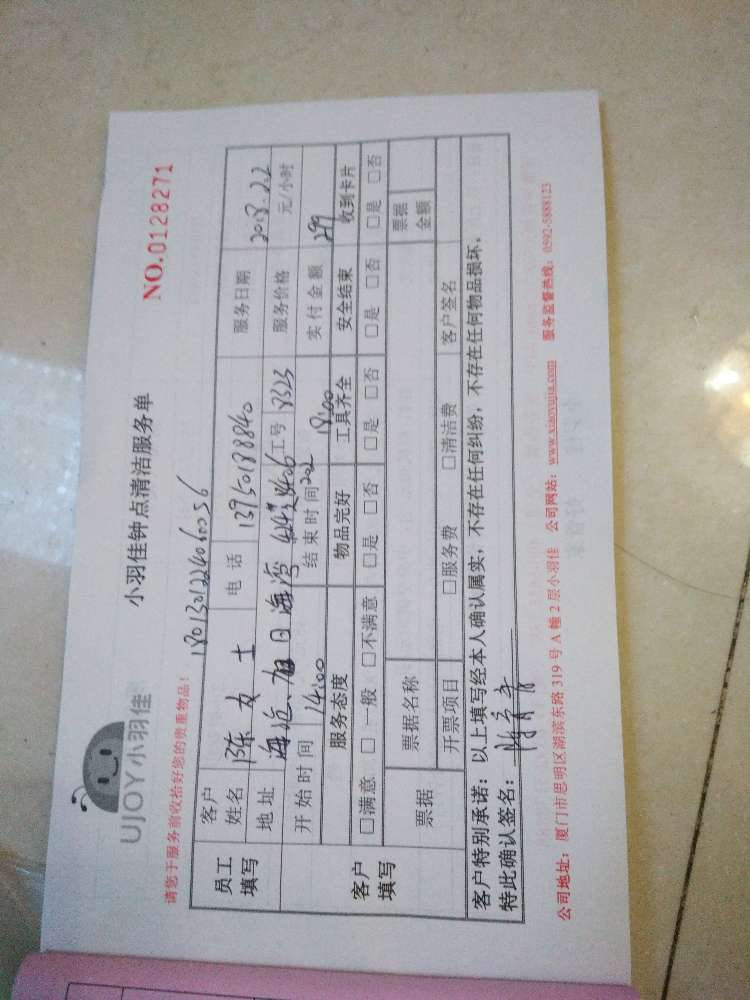 UJOY小羽佳
小羽佳钟点清洁服务单
NO.0128271
请您于服务前收拾好您的贵重物品!
员工填写
客户姓名 陈女士 电话 13950188840 服务日期
地址 工号 8323 服务价格 元/小时
开始时间 14:00 结束时间 18:00 实付金额 299
客户填写
服务态度 物品完好 工具齐全 安全结束 收到卡片
□满意 □一般 □不满意 □是 □否 □是 □否 □是 □否 □是 □否
票据 票据名称 票据金额
开票项目 □服务费 □清洁费 客户签名
客户特别承诺:以上填写经本人确认属实,不存在任何纠纷,不存在任何物品损坏,
特此确认签名:
公司地址:厦门市思明区湖滨东路319号A幢2层小羽佳 公司网站:www.xiaoyujia.com 服务监督热线:0592-5888123